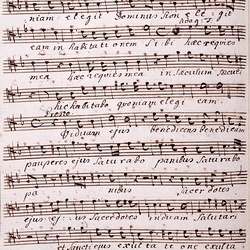 niam elegit Dominus Sion elegit
eam in habitationem Sibi haec requies
mea haec requies mea in Saeculum Saeculi
hic habitabo, quoniam elegi eam.
Viduam ejus benedicens benedicam
pauperes ejus Saturabo panibus Saturabo
panibus Sacerdotes
ejus Sacerdotes induam Salutari
et Sancti ejus exulta ti one exulta